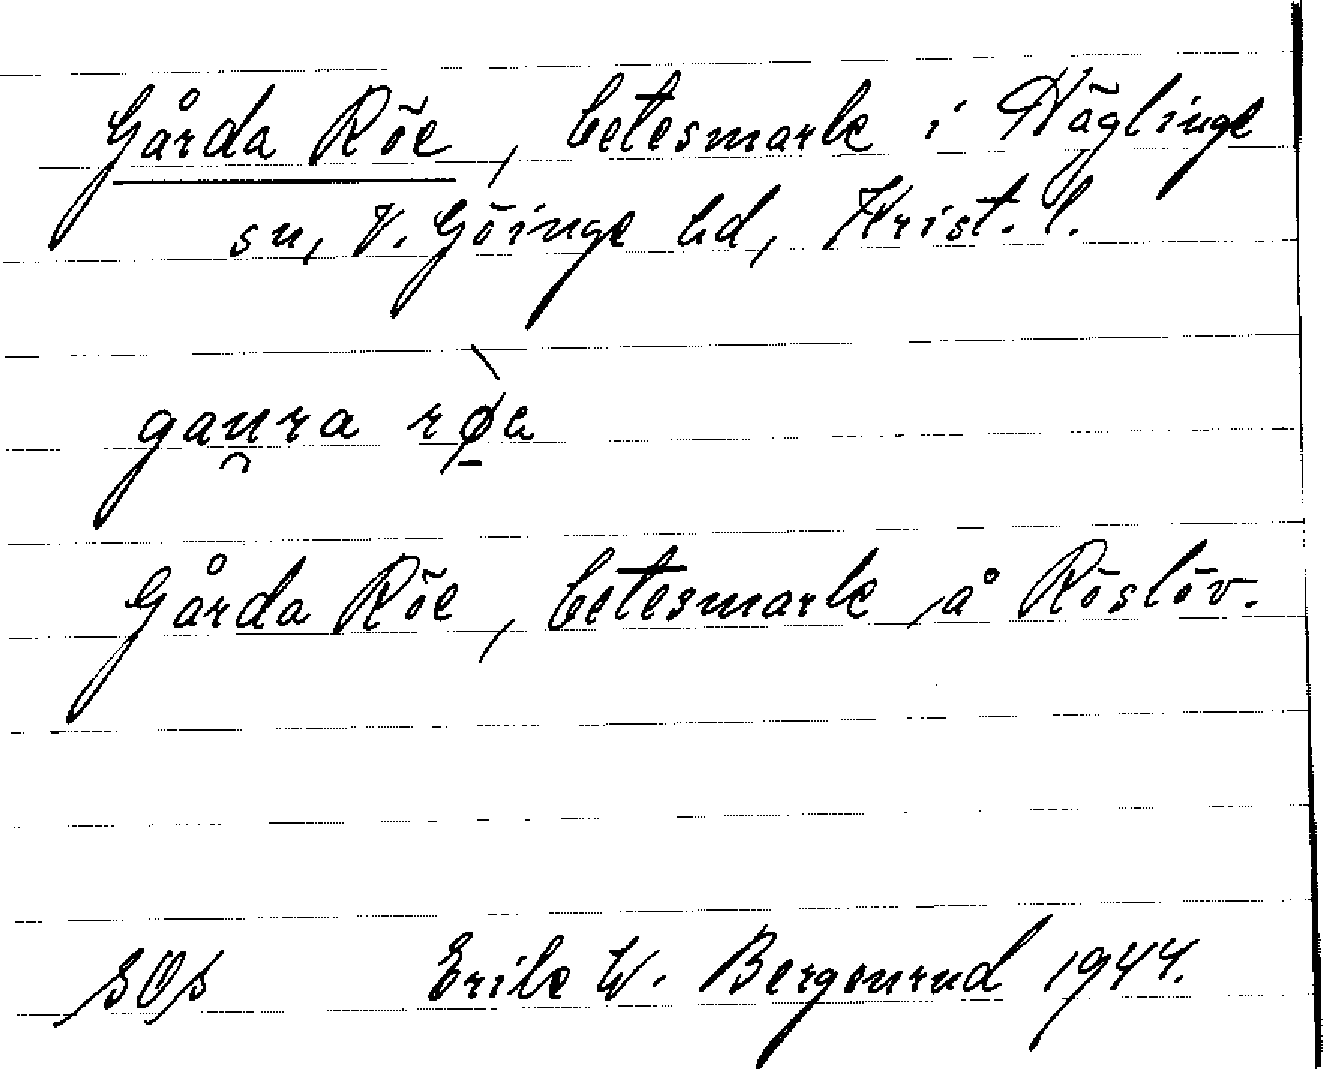 Gårda Röe, betesmark i Häglinge
sn, V. Göinge hd, Krist. l.
gau̯ra rø̠̀a
Gårda Röe, betesmark å Röslöv.
SOS Erik W. Bergonrud 1944.